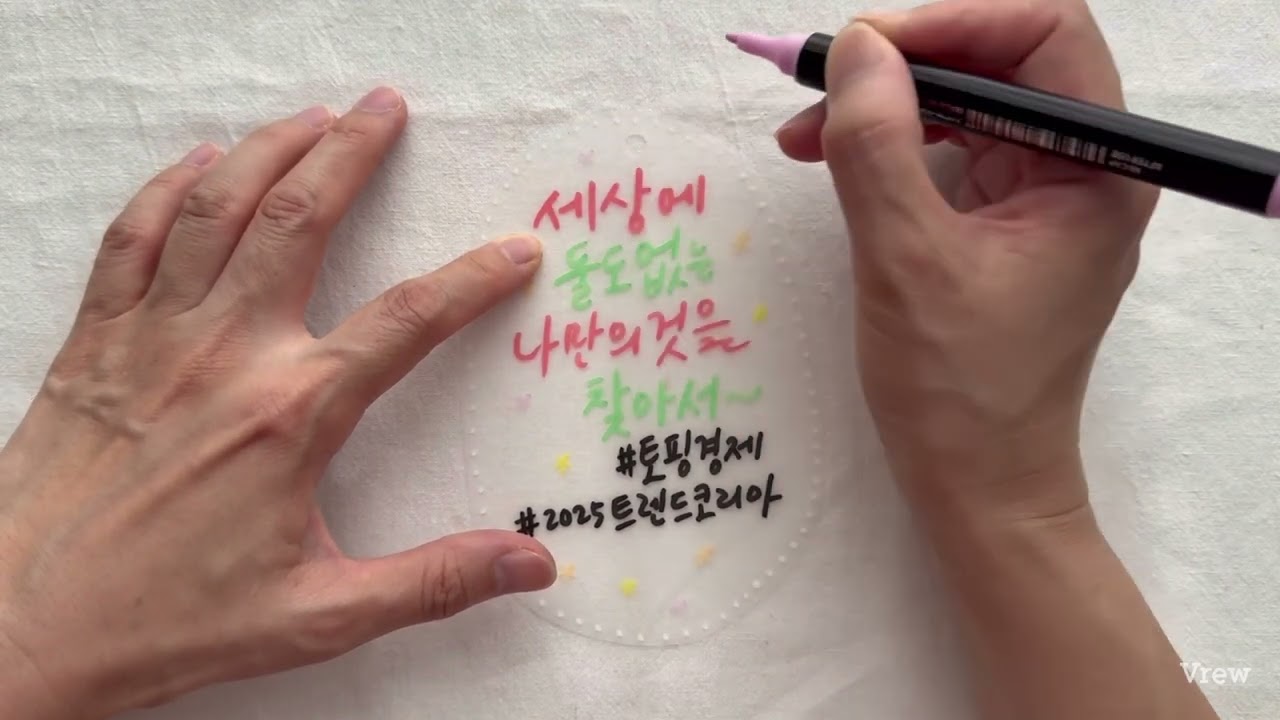 세상에
둘도없는
나만의것을
찾아서~
#토핑경제
#2025트렌드코리아
Vrew